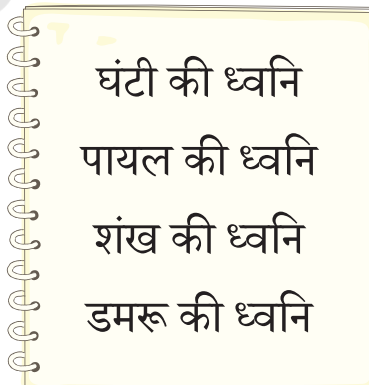 घंटी की ध्वनि
पायल की ध्वनि
शंख की ध्वनि
डमरू की ध्वनि